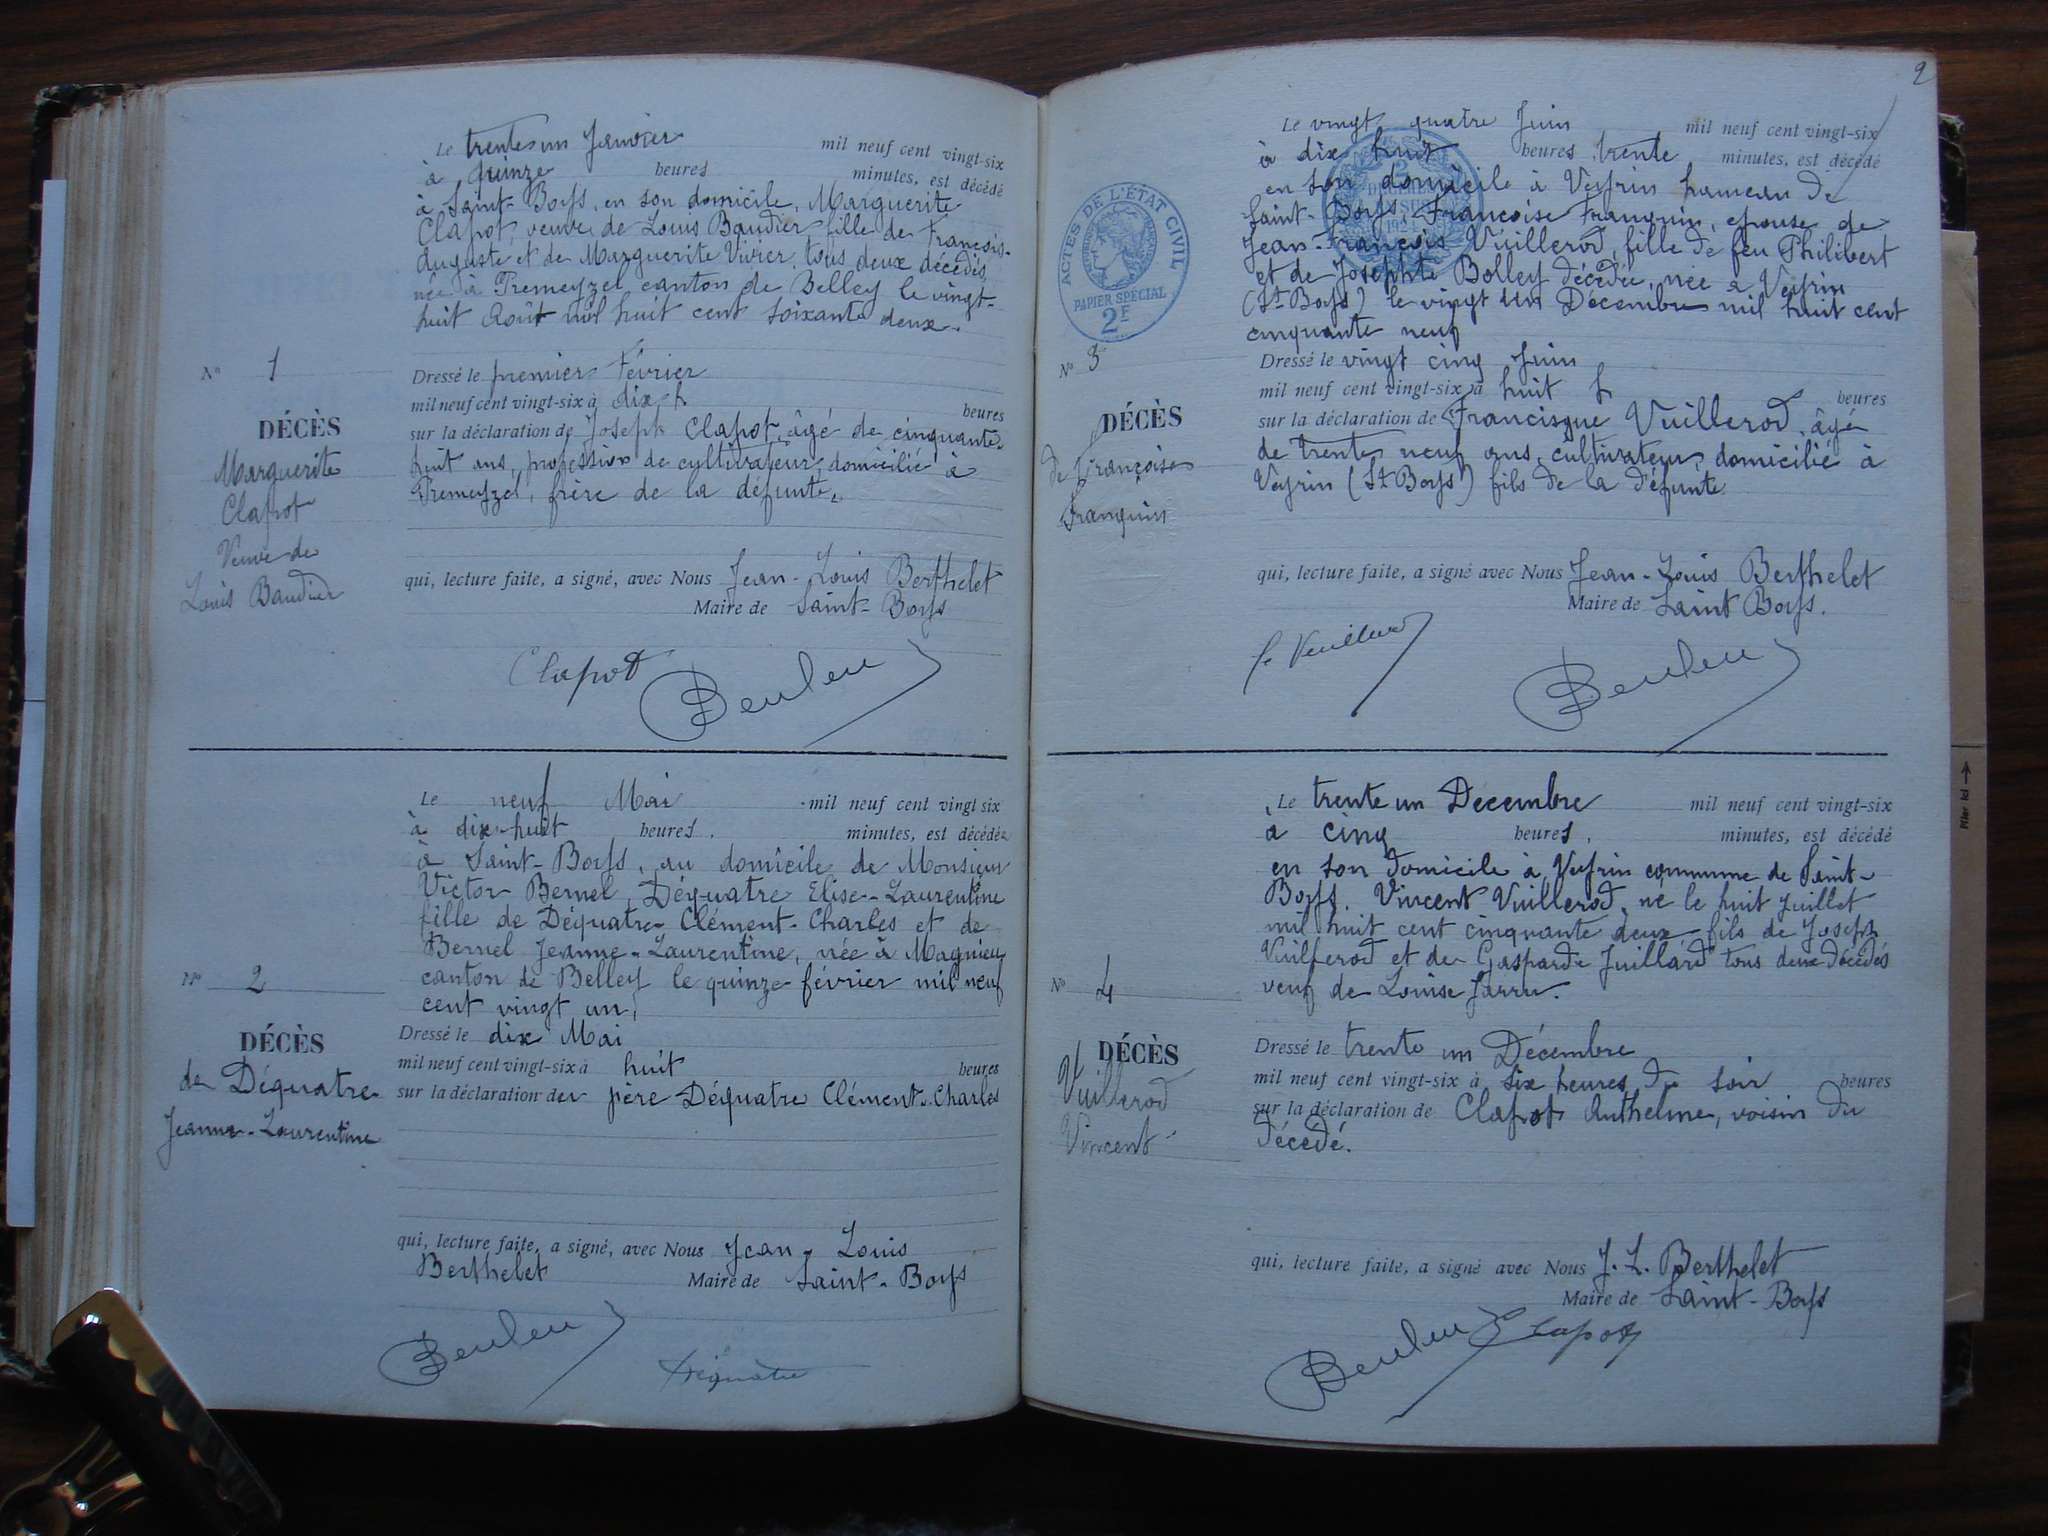 Le trente un Janvier mil neuf cent vingt-six
à quinze heures minutes, est décédé
à Saint-Boys, en son domicile, Marguerite
Clapot, veuve de Louis Baudier fille de François-
Auguste et de Marguerite Vivier, tous deux décédés
née à Premeyzel, canton de Belley le vingt-
huit Août mil huit cent soixante deux.
No 1
DÉCÈS
Marguerite
Clapot
Veuve de
Louis Baudier
Dressé le premier Février
mil neuf cent vingt-six à dix h heures
sur la déclaration de Joseph Clapot, âgé de cinquante
huit ans, profession de cultivateur, domicilié à
Premeyzel, frère de la défunte.
qui, lecture faite, a signé, avec Nous Jean-Louis Berthelet
Maire de Saint-Boys
Clapot
Le neuf Mai mil neuf cent vingt six
à dix-huit heures. minutes, est décédée
à Saint-Boys, au domicile de Monsieur
Victor Bernel, Déquatre Elise-Laurentine
fille de Déquatre Clément-Charles et de
Bernel Jeanne-Laurentine, née à Magnieu
canton de Belley le quinze février mil neuf
cent vingt un.
No 2
DÉCÈS
de Déquatre
Jeanne-Laurentine
Dressé le dix Mai
mil neuf cent vingt-six à huit heures
sur la déclaration du père Déquatre Clément-Charles
qui, lecture faite, a signé, avec Nous Jean-Louis
Berthelet Maire de Saint-Boys
Déquatre
2
Le vingt quatre Juin mil neuf cent vingt-six
à dix huit heures trente minutes, est décédé
en son domicile à Veyrin hameau de
Saint-Boys, Françoise Franquin, epouse de
Jean-François Vuillerod, fille de feu Philibert
et de Josephte Bolley décédée, née à Veyrin
(St Boys) le vingt un Décembre mil huit cent
cinquante neuf
ACTES DE L'ÉTAT CIVIL
PAPIER SPÉCIAL
2F
No 3
DÉCÈS
de Françoise
Franquin
Dressé le vingt cinq Juin
mil neuf cent vingt-six à huit h heures
sur la déclaration de Francisque Vuillerod, âgé
de trente neuf ans, cultivateur, domicilié à
Veyrin (St Boys) fils de la défunte.
qui, lecture faite, a signé avec Nous Jean-Louis Berthelet
Maire de Saint Boys.
Le trente un Décembre mil neuf cent vingt-six
à cinq heures, minutes, est décédé
en son domicile à Veyrin commune de Saint-
Boys. Vincent Vuillerod, né le huit Juillet
mil huit cent cinquante deux fils de Joseph
Vuillerod et de Gasparde Juillard tous deux décédés
veuf de Louise Jarru.
No 4
DÉCÈS
Vuillerod
Vincent
Dressé le trente un Décembre
mil neuf cent vingt-six à six heures du soir heures
sur la déclaration de Clapot Anthelme, voisin du
décédé.
qui, lecture faite, a signé avec Nous J. L. Berthelet
Maire de Saint-Boys
Clapot